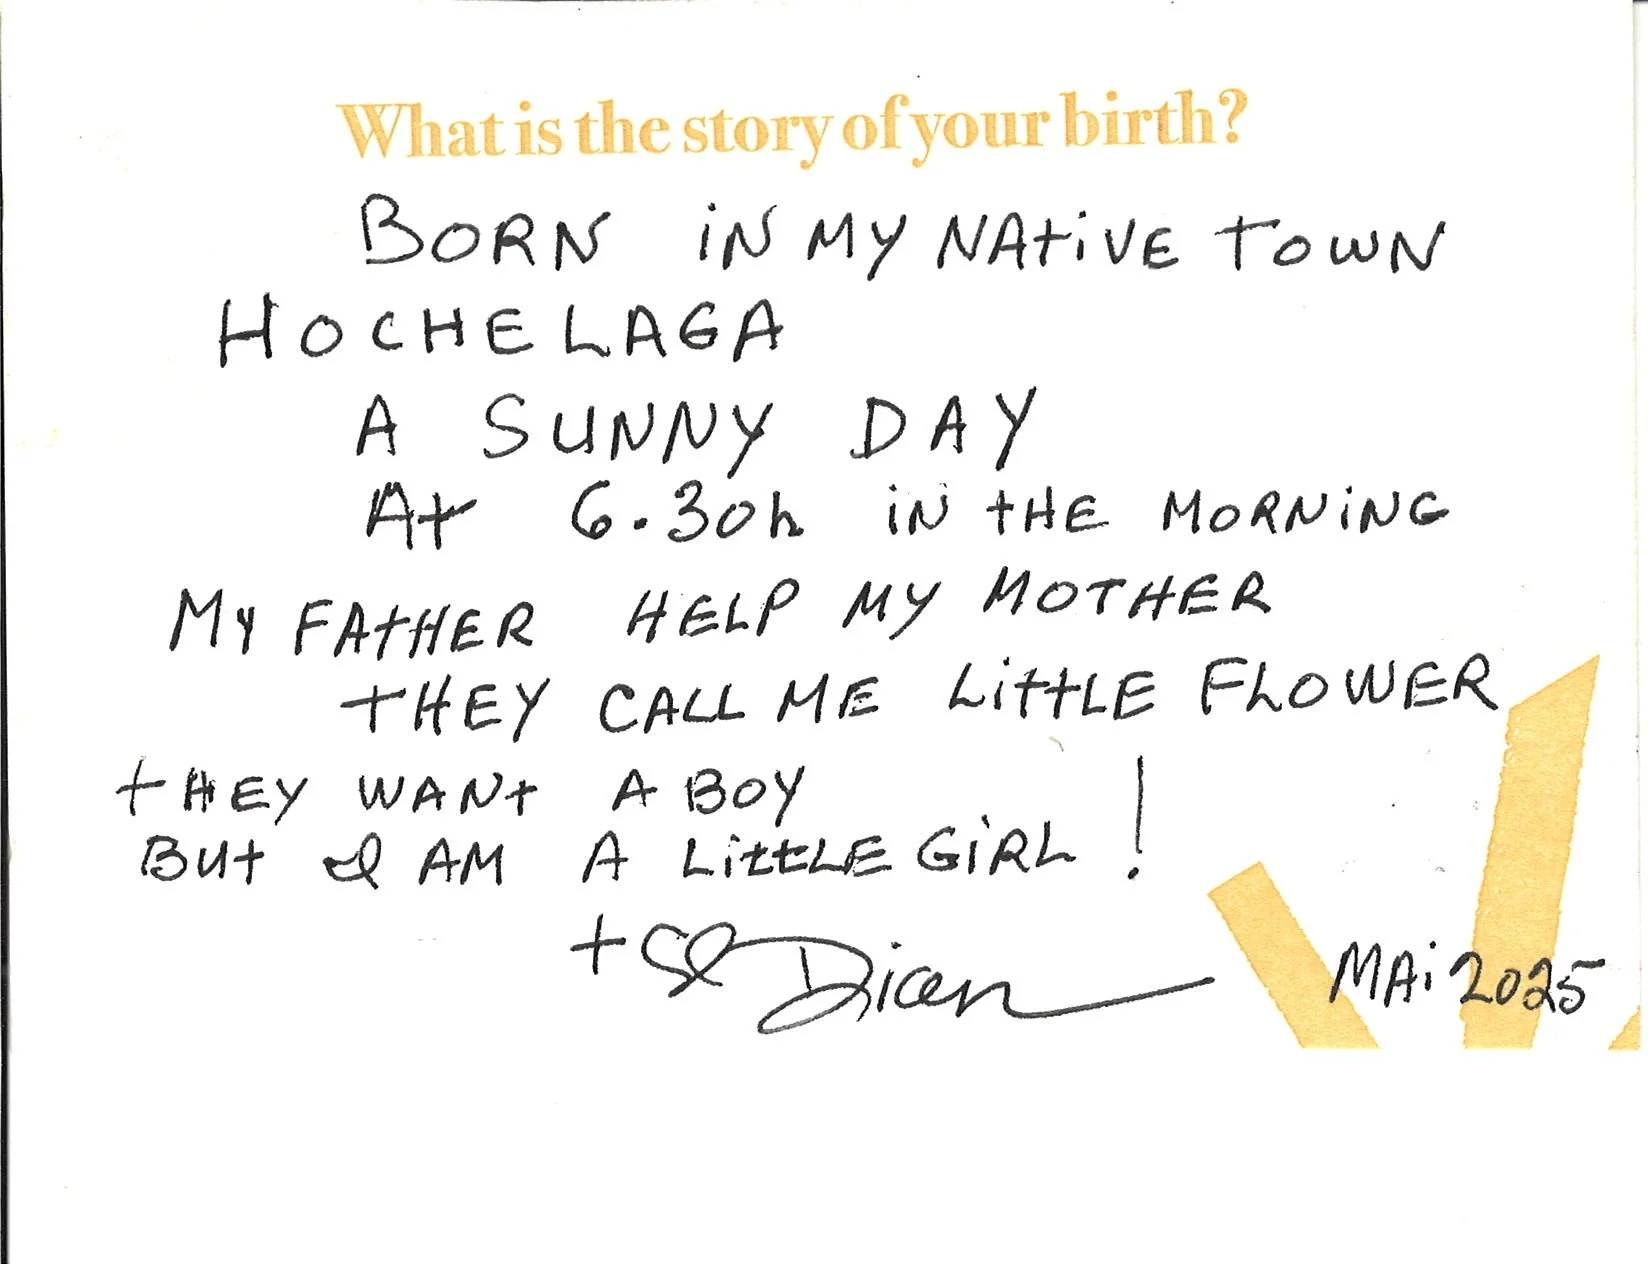 What is the story of your birth?
BORN iN MY NAtiVE TOWN
HOCHELAGA
A SUNNY DAY
At 6.30h iN tHE MORNiNG
MY FAtHER HELP MY MOTHER
tHEY CALL ME LittLE FLOWER
tHEY WANt A BOY
BUt I AM A LittLE GiRL !
MAi 2025